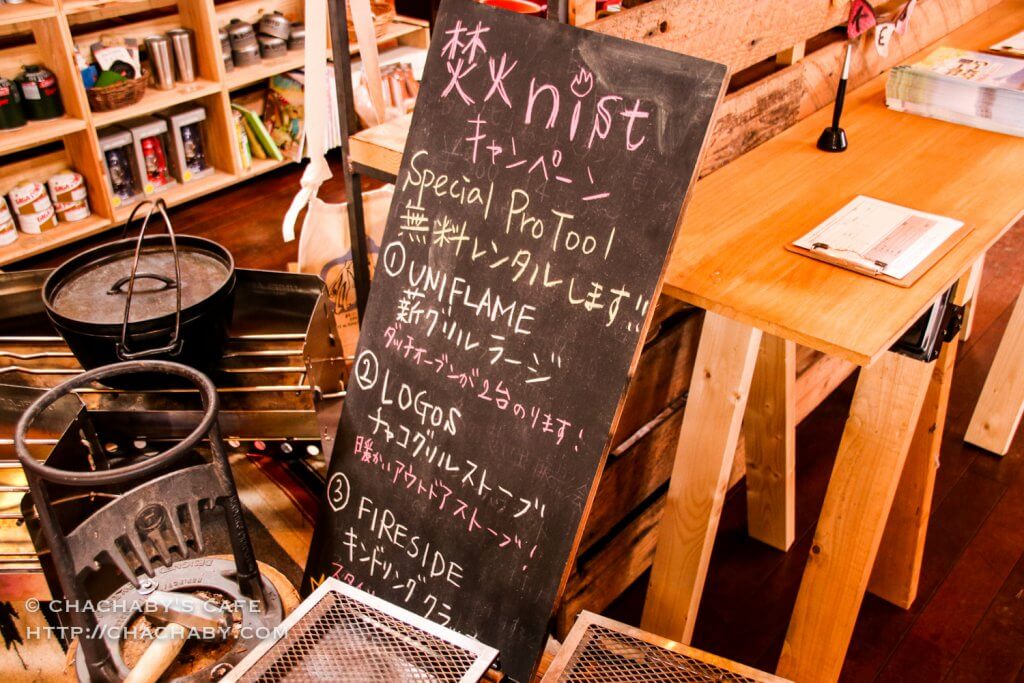 焚火nist
キャンペーン
Special ProTool
無料レンタルします!!
① UNIFLAME
薪グリル ラージ
ダッチオーブンが2台のります!
② LOGOS
チャコグリルストーブ
暖かいアウトドアストーブ!
③ FIRESIDE
キンドリングクラ
© CHACHABY'S CAFE
HTTP://CHACHABY.COM